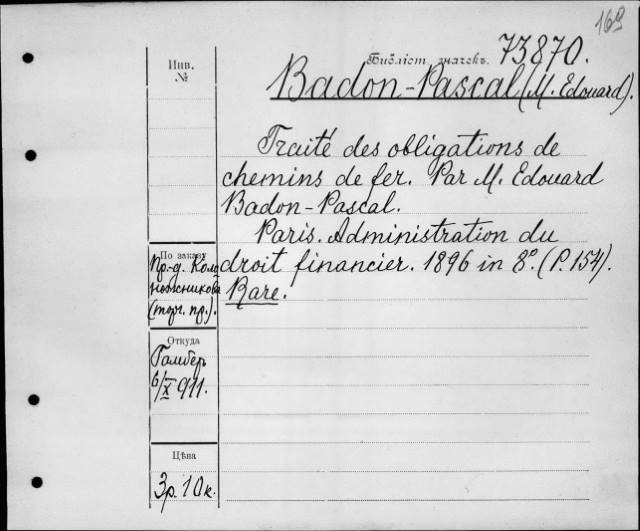 169
Инв.
№
Библіот. значекъ. 73870.
Badon-Pascal (M. Edouard).
Traité des obligations de
chemins de fer. Par M. Edouard
Badon-Pascal.
Paris. Administration du
droit financier. 1896 in 8°. (P. 154).
Rare.
По заказу
Пр.-д. Коло
(торг. пр.).
Откуда
6/X 911.
Цѣна
3 р. 10 к.